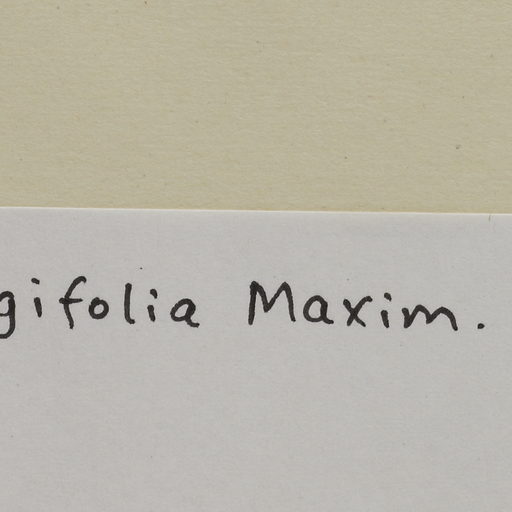 gifolia Maxim.